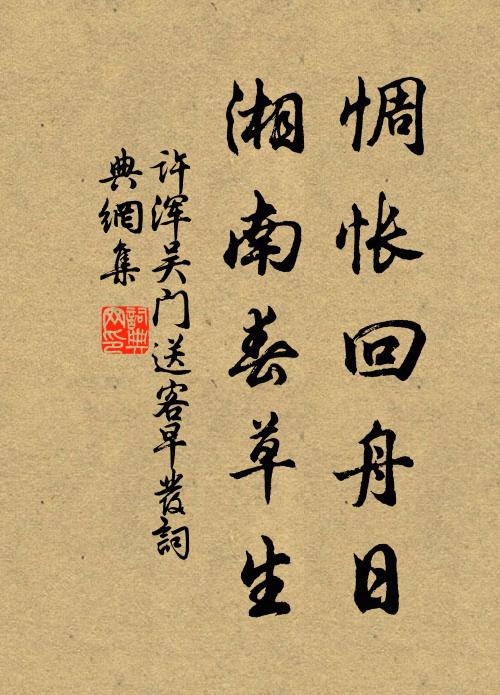 惆怅回舟日
湘南春草生
许浑吴门送客早發詞
典網集
詞典
网印